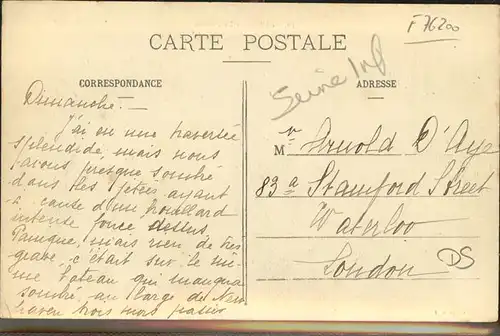 F 76200
CARTE POSTALE
Seine Inf
CORRESPONDANCE
ADRESSE
Dimanche. —
J'ai eu une traversée
splendide, mais nous
avons presque sombré
dans les jetées ayant
à cause d'un brouillard
intense foncé dessus
Panique, mais rien de très
grave, c'était sur le mê-
me bateau qui manqua
sombrer au large de New-
haven trois mois passés
Mr Arnold D'Ays
83a Stamford Street
Waterloo
London
DS